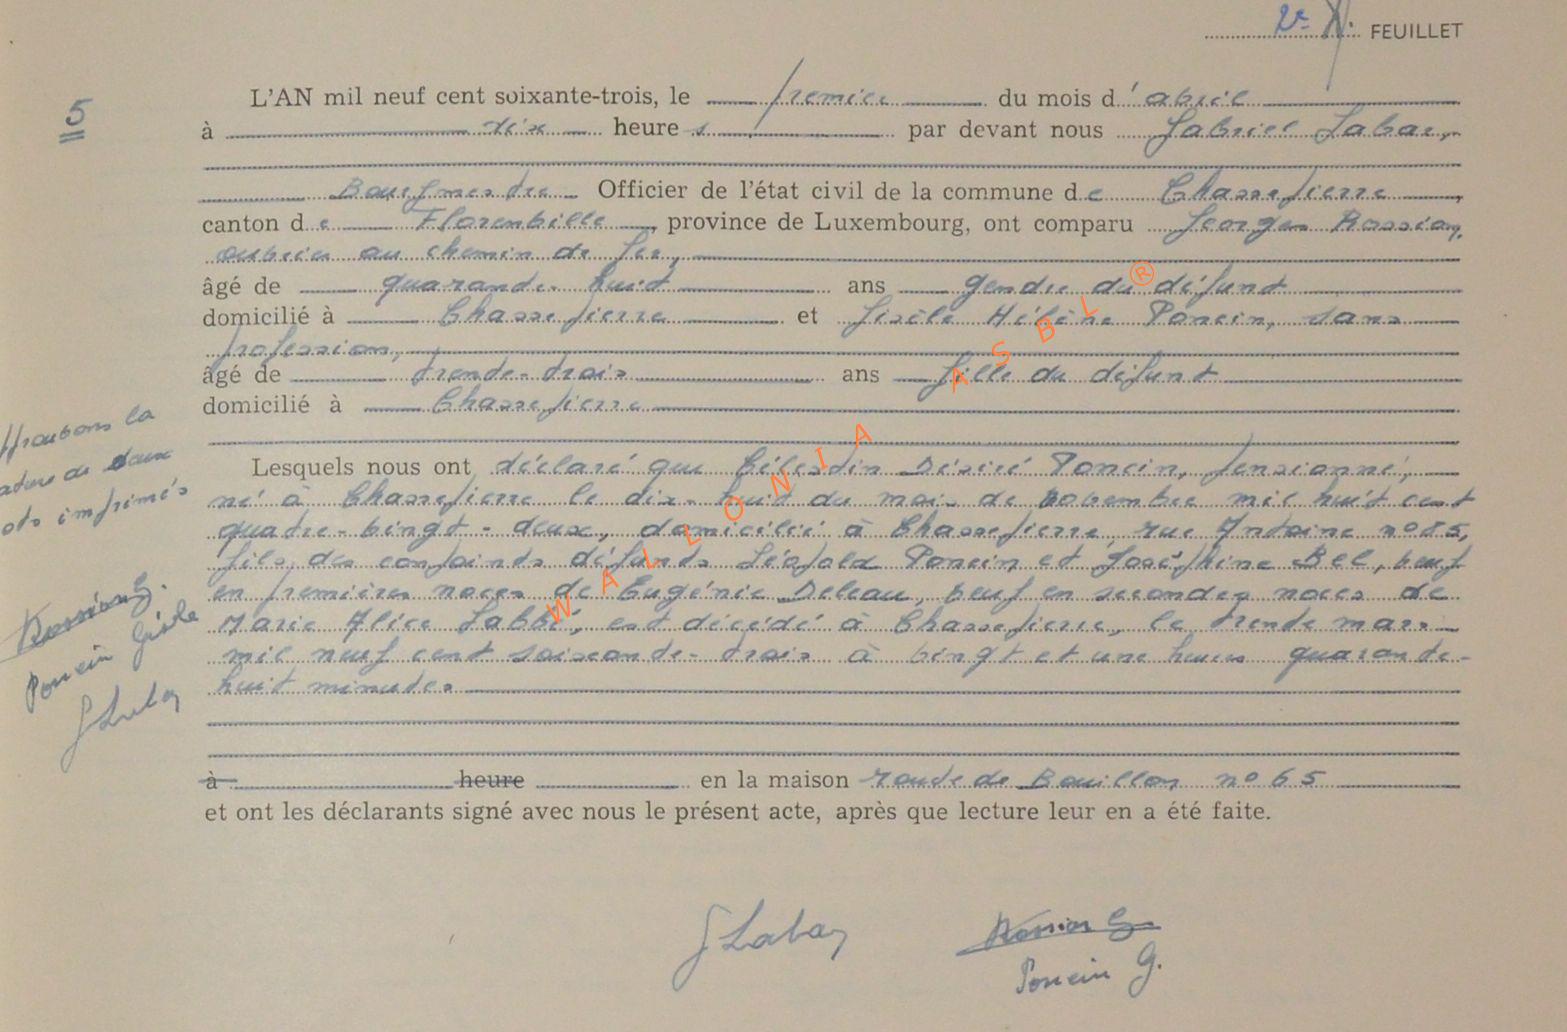 2e X. FEUILLET
5
L'AN mil neuf cent soixante-trois, le premier du mois d'abril
à dix heures par devant nous Gabriel Labar,
Bourgmestre Officier de l'état civil de la commune de Chassepierre
canton de Florenville, province de Luxembourg, ont comparu Georges Rossion,
ouvrier au chemin de fer,
âgé de quarante-huit ans gendre du défunt
domicilié à Chassepierre et Gisèle Hélène Poncin, sans
profession,
âgé de trente-trois ans fille du défunt
domicilié à Chassepierre
Lesquels nous ont déclaré que Célestin Désiré Poncin, pensionné,
né à Chassepierre le dix-huit du mois de novembre mil huit cent
quatre-vingt-deux, domicilié à Chassepierre, rue Antoine no 85,
fils des conjoints défunts Léopold Poncin et Joséphine Bel, veuf
en premières noces de Eugénie Deleau, veuf en secondes noces de
Marie Alice Labbé, est décédé à Chassepierre, le trente mars
mil neuf cent soixante-trois à vingt et une heures quarante-
huit minutes
à heure en la maison route de Bouillon no 65
et ont les déclarants signé avec nous le présent acte, après que lecture leur en a été faite.
pprouvons la
rature de deux
ots imprimés
Rossion G.
Poncin Gisèle
G Labar
G Labar
Rossion G
Poncin G.
WALLONIA ASBL ®